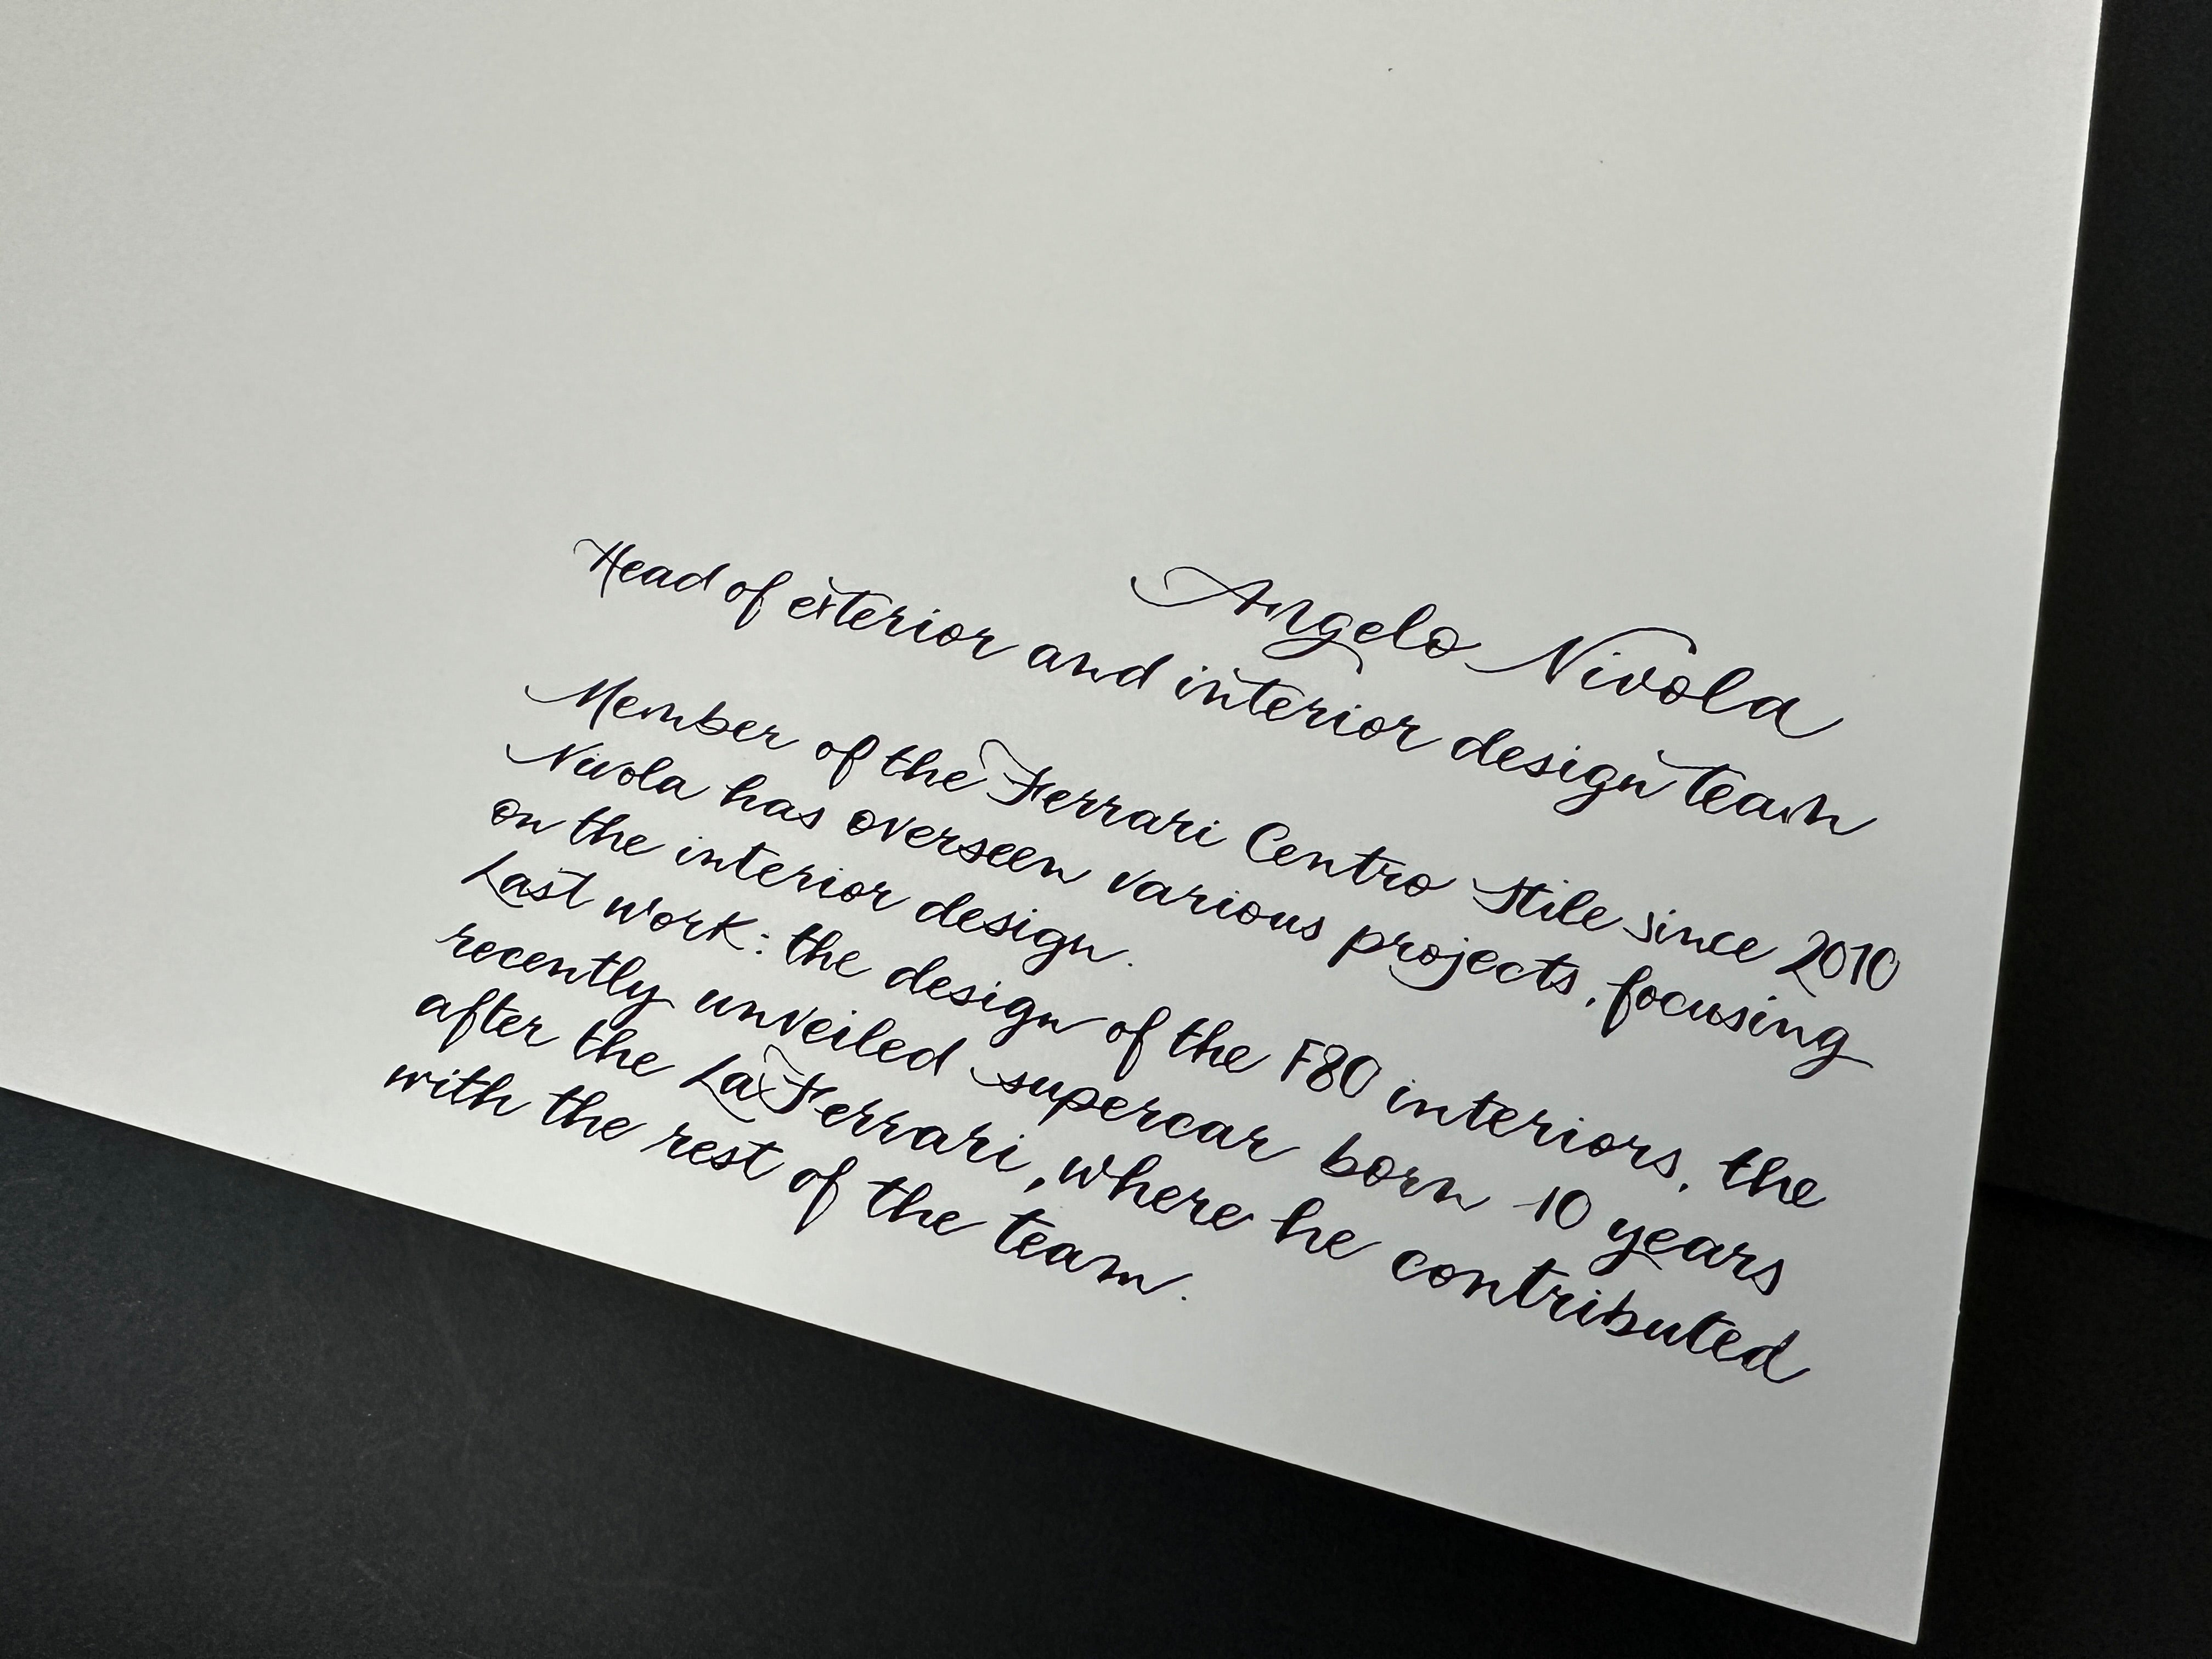 Angelo Nivola
Head of exterior and interior design team
Member of the Ferrari Centro Stile since 2010
Nivola has overseen various projects, focusing
on the interior design.
Last work: the design of the F80 interiors, the
recently unveiled supercar born 10 years
after the LaFerrari, where he contributed
with the rest of the team.